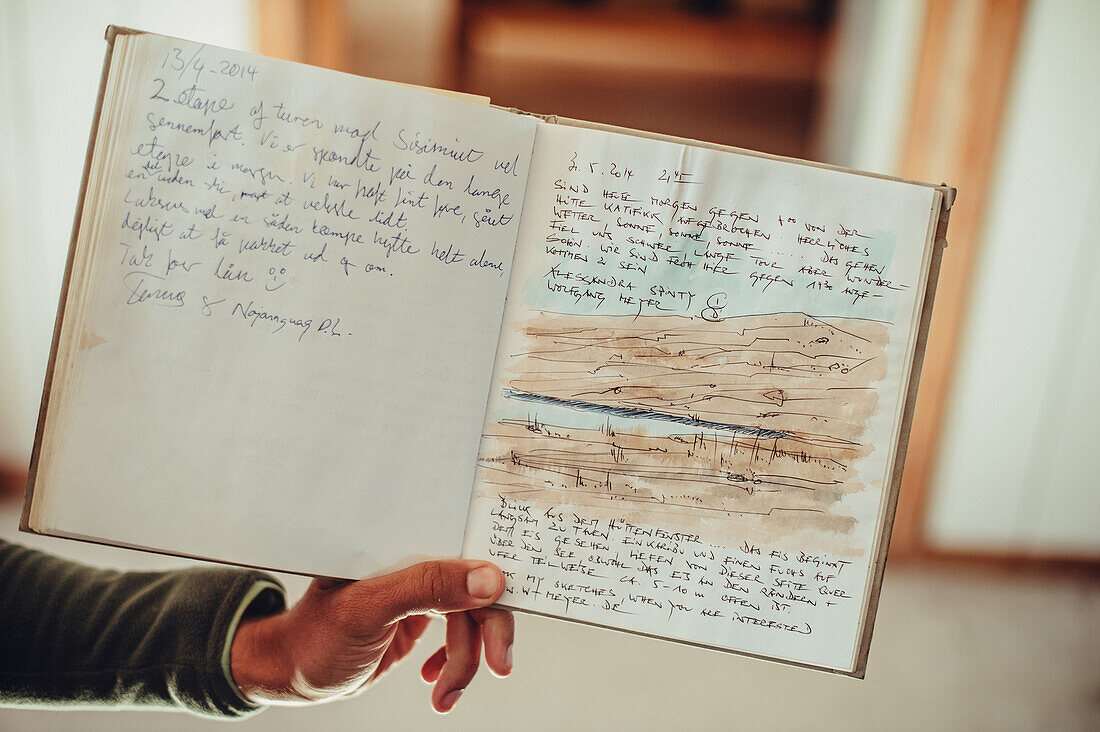 13/4-2014
2. etape af turen mod Sisimiut vel
gennemført. Vi er spændte på den lange
etape i morgen. Vi har haft fint føre, gået
en uden ski, at veksle lidt.
Luksus med en sådan kæmpe hytte helt alene,
dejligt at få pakket ud og om.
Tak for lån
& Najannguaq D.L.
3. 5. 2014 21 45
SIND HEUTE MORGEN GEGEN 7 00 VON DER
HÜTTE KATIFFIK AUFGEBROCHEN. HERRLICHES
WETTER, SONNE, SONNE, SONNE...... DAS GEHEN
FIEL UNS SCHWER, LANGE TOUR ABER WUNDER-
SCHÖN. WIR SIND FROH HIER GEGEN 19 30 ANGE-
KOMMEN Z SEIN
ALESSANDRA SANTY
WOLFGANG MEYER
BLICK AUS DEM HÜTTENFENSTER.... DAS EIS BEGINNT
LANGSAM ZU TAUEN. EIN KARIBU UND EINEN FUCHS AUF
DEM EIS GESEHEN, LIEFEN VON DIESER SEITE QUER
ÜBER DEN SEE, OBWOHL DAS EIS AN DEN RÄNDERN +
UFER TEILWEISE CA. 5-10 m OFFEN IST.
MY SKETCHES, WHEN YOU ARE INTERESTED
W.W-MEYER.DE